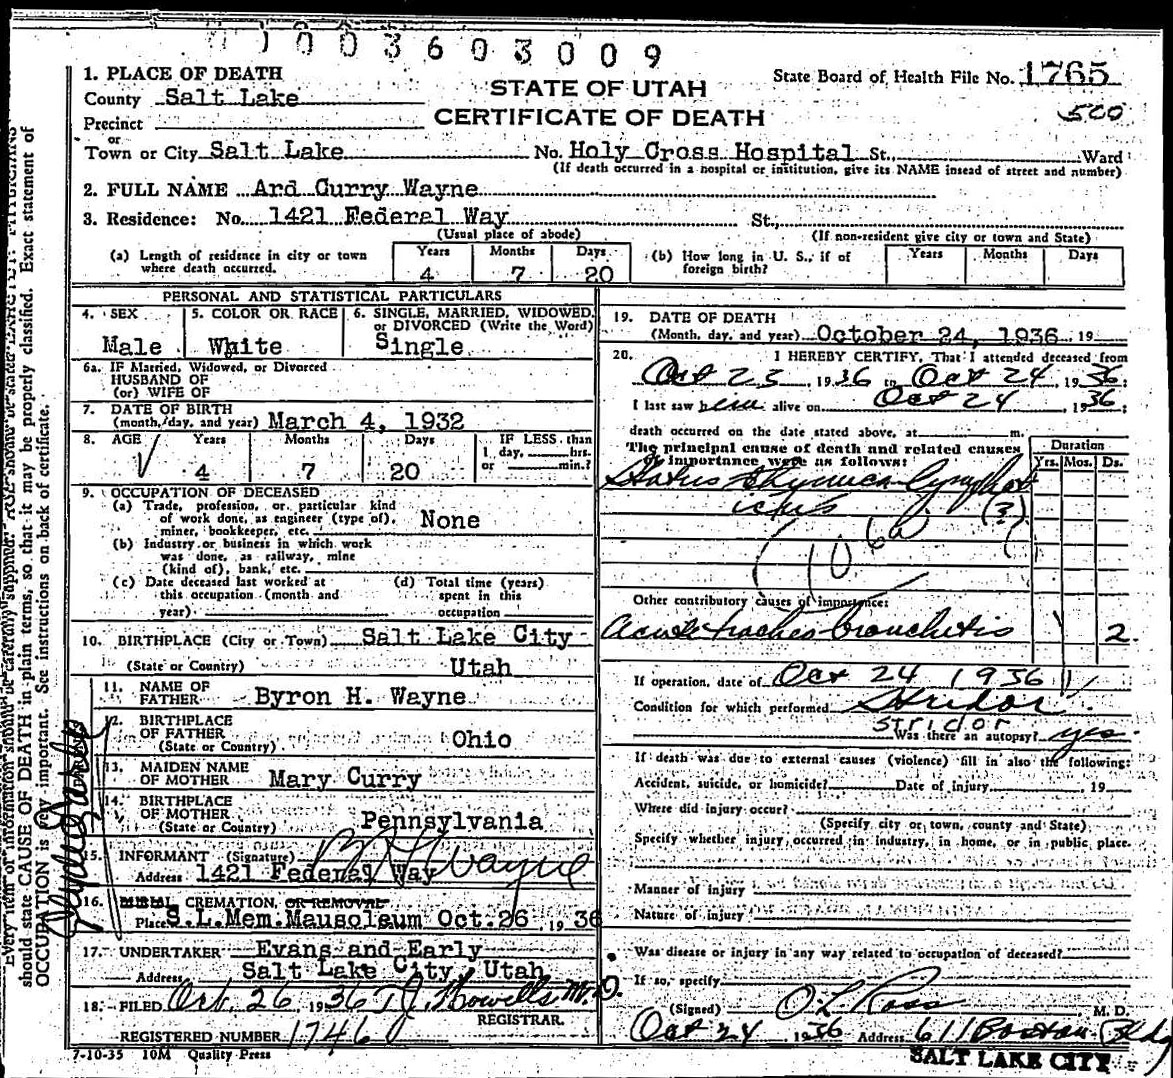 1003603009
1. PLACE OF DEATH
STATE OF UTAH
CERTIFICATE OF DEATH
State Board of Health File No. 1765
500
County Salt Lake
Precinct
or
Town or City Salt Lake No. Holy Cross Hospital St., Ward
(If death occurred in a hospital or institution, give its NAME insead of street and number)
2. FULL NAME Ard Curry Wayne
3. Residence: No. 1421 Federal Way St.,
(Usual place of abode) (If non-resident give city or town and State)
(a) Length of residence in city or town where death occurred. Years 4 Months 7 Days 20
(b) How long in U. S., if of foreign birth? Years Months Days
PERSONAL AND STATISTICAL PARTICULARS
4. SEX Male
5. COLOR OR RACE White
6. SINGLE, MARRIED, WIDOWED, or DIVORCED (Write the Word) Single
6a. IF Married, Widowed, or Divorced
HUSBAND OF
(or) WIFE OF
7. DATE OF BIRTH
(month, day, and year) March 4, 1932
8. AGE Years Months Days IF LESS than
1 day, hrs.
or min.?
4 7 20
9. OCCUPATION OF DECEASED
(a) Trade, profession, or particular kind
of work done, as engineer (type of),
miner, bookkeeper, etc. None
(b) Industry or business in which work
was done, as railway, mine
(kind of), bank, etc.
(c) Date deceased last worked at
this occupation (month and
year)
(d) Total time (years)
spent in this
occupation
10. BIRTHPLACE (City or Town) Salt Lake City
(State or Country) Utah
11. NAME OF
FATHER Byron H. Wayne
12. BIRTHPLACE
OF FATHER
(State or Country) Ohio
13. MAIDEN NAME
OF MOTHER Mary Curry
14. BIRTHPLACE
OF MOTHER
(State or Country) Pennsylvania
15. INFORMANT (Signature) B H Wayne
Address 1421 Federal Way
16. BURIAL CREMATION, OR REMOVAL
Place S.L.Mem.Mausoleum Oct.26, 1936
17. UNDERTAKER Evans and Early
Address Salt Lake City, Utah
18. FILED Oct. 26, 1936 T J Howells M.D.
REGISTRAR.
REGISTERED NUMBER 1746
7-10-35 10M Quality Press
19. DATE OF DEATH
(Month, day, and year) October 24, 1936, 19
20. I HEREBY CERTIFY, That I attended deceased from
Oct 23, 1936 to Oct 24 1936;
I last saw him alive on Oct 24 1936;
death occurred on the date stated above, at m.
The principal cause of death and related causes
of importance were as follows:
Duration
Yrs. Mos. Ds.
Status thymica-lymphat
icus (?)
Other contributory causes of importance:
Acute tracheo bronchitis 2
If operation, date of Oct 24 1936
Condition for which performed Stridor
stridor
Was there an autopsy? yes.
If death was due to external causes (violence) fill in also the following:
Accident, suicide, or homicide? Date of injury 19
Where did injury occur?
(Specify city or town, county and State)
Specify whether injury occurred in industry, in home, or in public place.
Manner of injury
Nature of injury
Was disease or injury in any way related to occupation of deceased?
If so, specify
(Signed) O L Ross M. D.
Oct 24 1936 Address 611 Boston Bldg
SALT LAKE CITY
should state CAUSE OF DEATH in plain terms, so that it may be properly classified. Exact statement of
OCCUPATION is very important. See instructions on back of certificate.